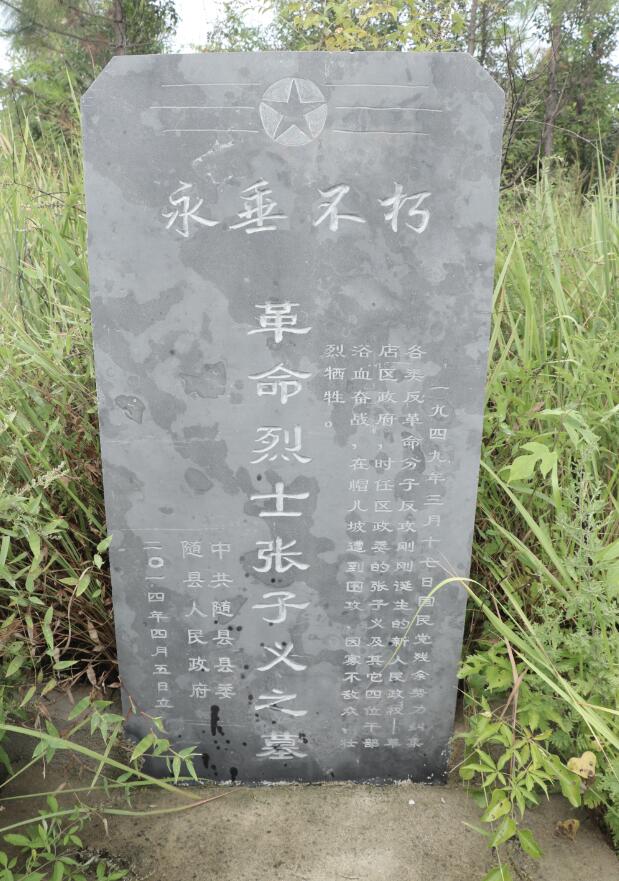 永垂不朽
一九四九年三月十七日国民党残余势力纠集
各类反革命分子反攻刚刚诞生的新人民政权—草
店区政府，时任区政委的张子义及其它四位干部
浴血奋战，在帽儿坡遭到围攻，因寡不敌众，壮
烈牺牲。
革命烈士张子义之墓
中共随县县委
随县人民政府
二〇一四年四月五日立